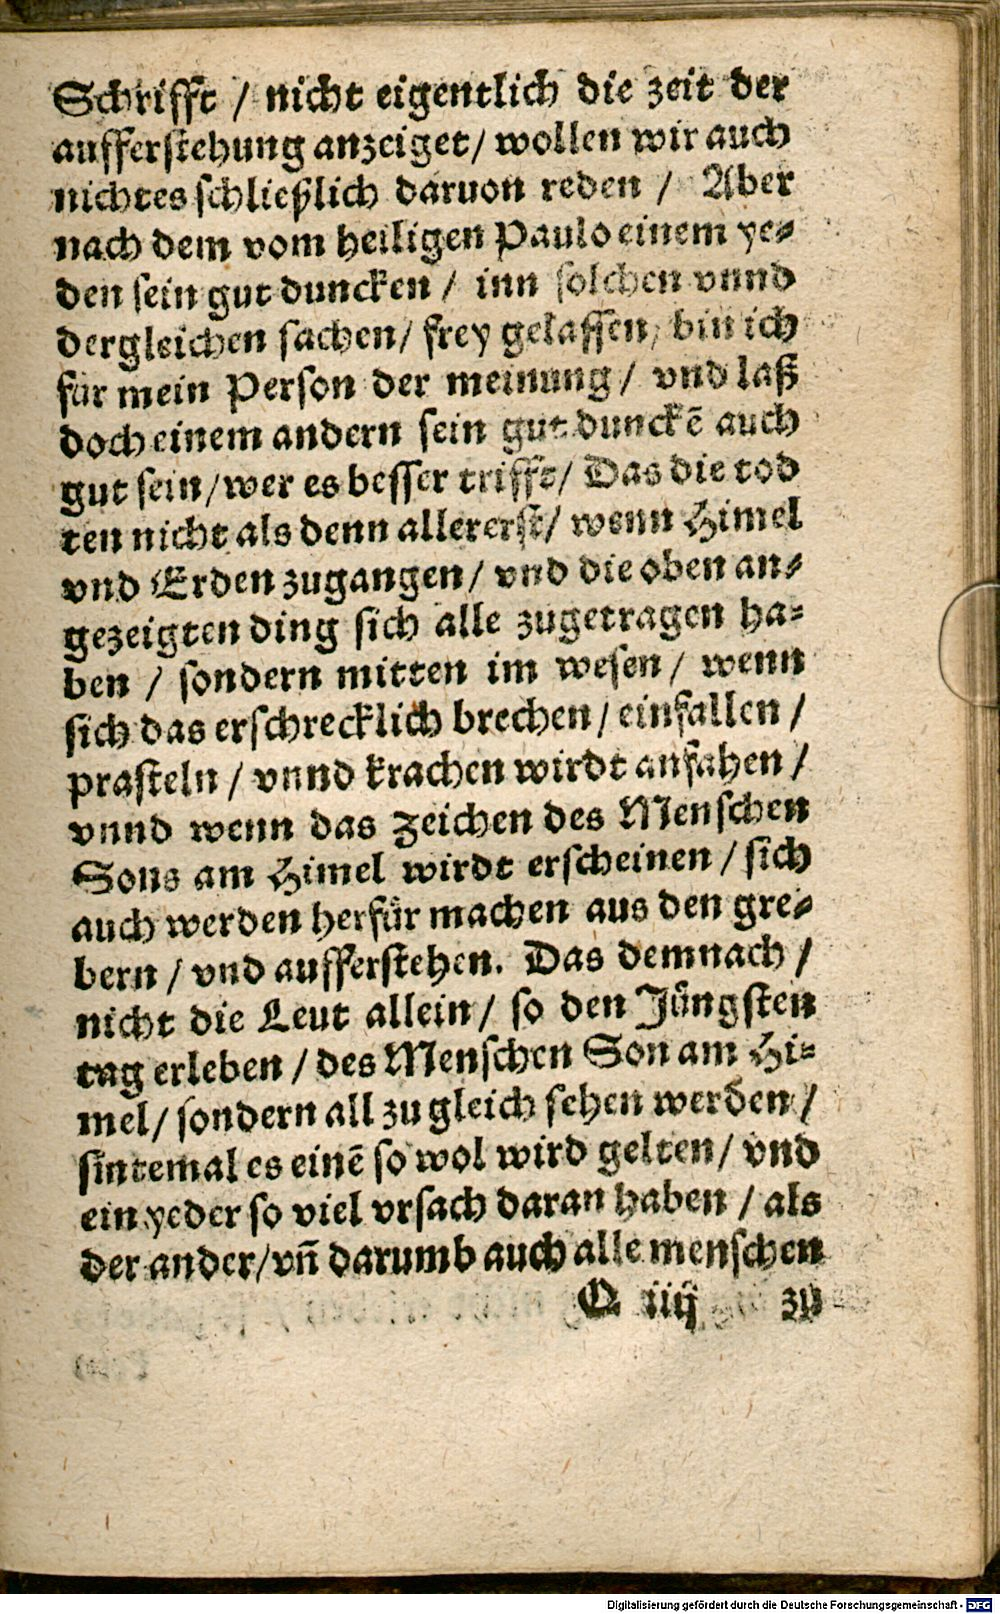 Schrifft / nicht eigentlich die zeit der
aufferstehung anzeiget / wollen wir auch
nichtes schließlich daruon reden / Aber
nach dem vom heiligen Paulo einem ye-
den sein gut duncken / inn solchen vnnd
dergleichen sachen / frey gelassen / bin ich
für mein Person der meinung / vnd laß
doch einem andern sein gut dunckē auch
gut sein / wer es besser trifft / Das die tod
ten nicht als denn allererst / wenn Himel
vnd Erden zugangen / vnd die oben an-
gezeigten ding sich alle zugetragen ha-
ben / sondern mitten im wesen / wenn
sich das erschrecklich brechen / einfallen /
prasteln / vnnd krachen wirdt anfahen /
vnnd wenn das zeichen des Menschen
Sons am Himel wirdt erscheinen / sich
auch werden herfür machen aus den gre-
bern / vnd aufferstehen. Das demnach /
nicht die Leut allein / so den Jüngsten
tag erleben / des Menschen Son am Hi-
mel / sondern all zu gleich sehen werden /
sintemal es einē so wol wird gelten / vnd
ein yeder so viel vrsach daran haben / als
der ander / vñ darumb auch alle menschen
Q iiij zu
Digitalisierung gefördert durch die Deutsche Forschungsgemeinschaft - DFG